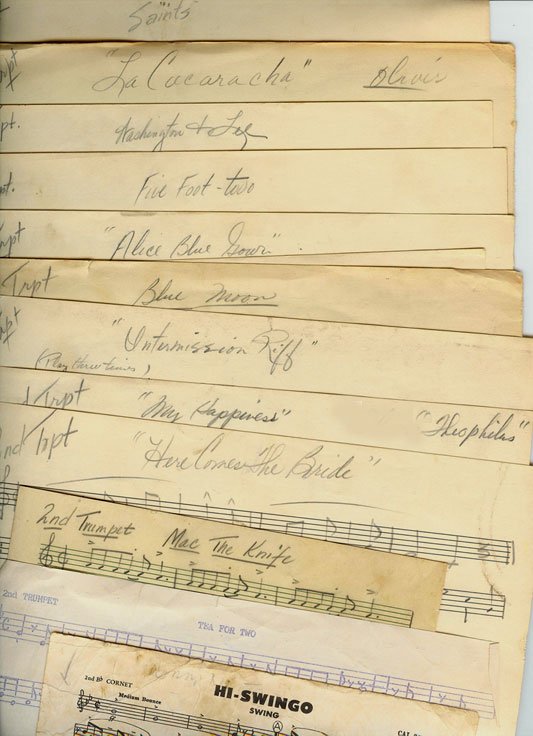 Saints
"La Cucaracha"
pt. Washington & Lee
Five Foot-two
"Alice Blue Gown".
Trpt Blue Moon
"Intermission Riff"
(Play three times)
Trpt "My Happiness" "Theophilis"
2nd Trpt "Here Comes The Bride"
2nd Trumpet Mac The Knife
2nd TRUMPET TEA FOR TWO
2nd Bb CORNET HI-SWINGO
Medium Bounce SWING A